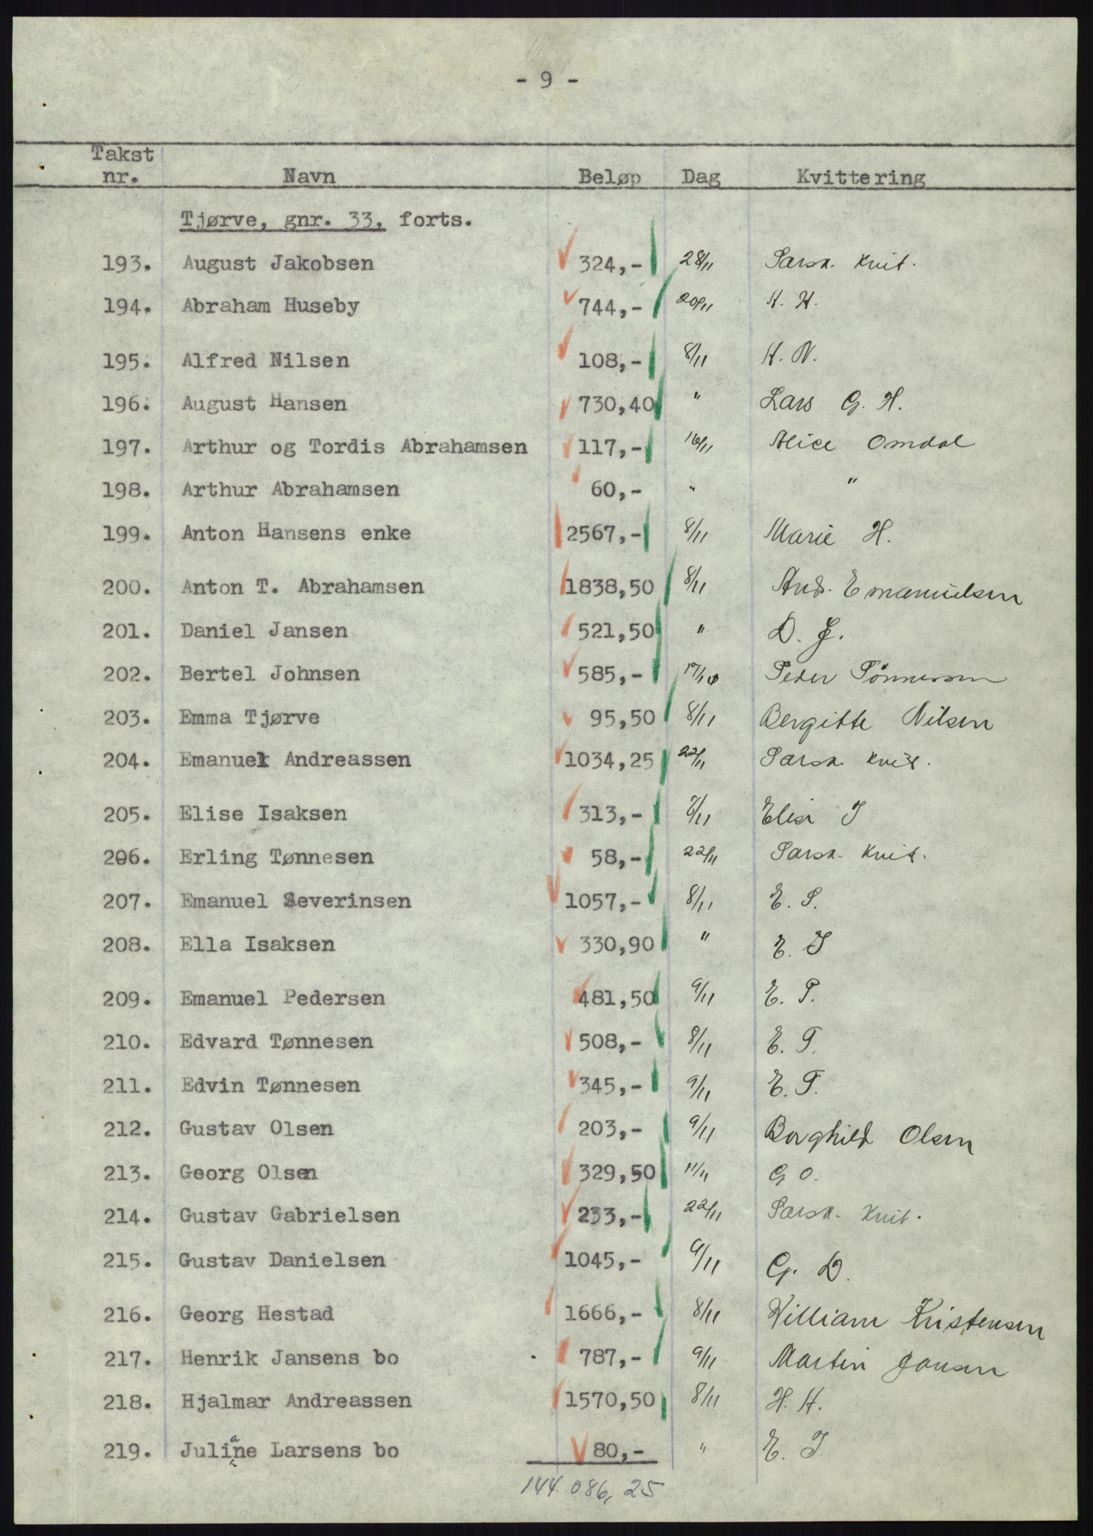 - 9 -
Takst nr. Navn Beløp Dag Kvittering
Tjørve, gnr. 33, forts.
193. August Jakobsen 324,- 28/11 Særsk. Kvit.
194. Abraham Huseby 744,- 20/11 H. H.
195. Alfred Nilsen 108,- 8/11 H. N.
196. August Hansen 730,40 " Lars G. H.
197. Arthur og Tordis Abrahamsen 117,- 16/11 Alice Omdal
198. Arthur Abrahamsen 60,- " "
199. Anton Hansens enke 2567,- 8/11 Marie H.
200. Anton T. Abrahamsen 1838,50 8/11 And. Emanuelsen
201. Daniel Jansen 521,50 " D. J.
202. Bertel Johnsen 585,- Peder Tønnessen
203. Emma Tjørve 95,50 8/11 Bergitte Nilsen
204. Emanuel Andreassen 1034,25 22/11 Særsk Kvit.
205. Elise Isaksen 313,- 8/11 Elise I
206. Erling Tønnesen 58,- 22/11 Særsk. Kvit.
207. Emanuel Severinsen 1057,- 8/11 E. S.
208. Ella Isaksen 330,90 " E. I
209. Emanuel Pedersen 481,50 9/11 E. P.
210. Edvard Tønnesen 508,- 8/11 E. T.
211. Edvin Tønnesen 345,- 9/11 E. T.
212. Gustav Olsen 203,- 9/11 Borghild Olsen
213. Georg Olsen 329,50 11/11 G O.
214. Gustav Gabrielsen 233,- 22/11 Særsk. Kvit.
215. Gustav Danielsen 1045,- 9/11 G. D.
216. Georg Hestad 1666,- 8/11 William Kristensen
217. Henrik Jansens bo 787,- 9/11 Martin Jansen
218. Hjalmar Andreassen 1570,50 8/11 H. H.
219. Juliane Larsens bo 80,- " E. I.
144.086,25